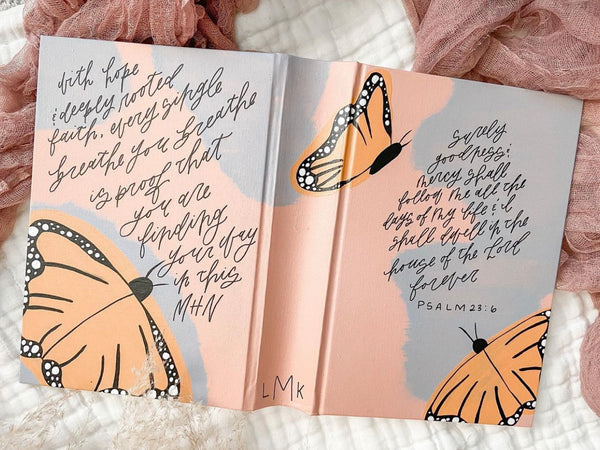 with hope
& deeply rooted
faith, every single
breathe you breathe
is proof that
you are
finding
your way
in this
MHN
LMK
Surely
goodness &
mercy shall
follow me all the
days of my life & I
shall dwell in the
house of the Lord
forever
PSALM 23:6